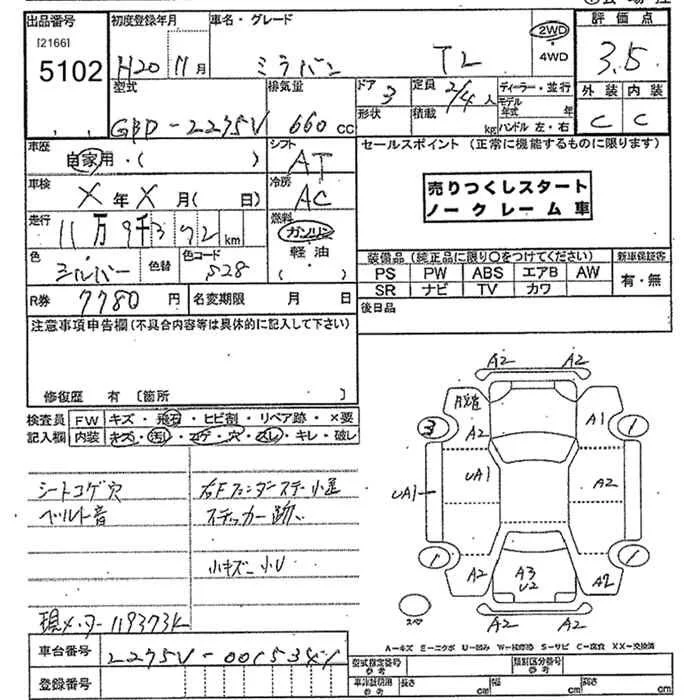 出品番号 初度登録年月 車名・グレード 評価点
[2166]
5102 H20 11月 ミラバン TL 2WD・4WD 3.5
型式 排気量 ドア 3 定員 2/4人 ディーラー・並行 外装 内装
形状 積載 kg モデル年式 年 ハンドル 左・右
GBD-L275V 660cc C C
車歴 シフト セールスポイント(正常に機能するものに限ります)
自家用・( ) AT
車検 冷房 売りつくしスタート
X年X月( 日) AC ノークレーム車
走行 燃料
11万9千372km ガソリン
色 色替 色コード 軽油 装備品(純正品に限り○をつけてください) 新車保証書
シルバー S28 ( ) PS PW ABS エアB AW 有・無
SR ナビ TV カワ
R券 7780円 名変期限 月 日 後日品
注意事項申告欄(不具合内容等は具体的に記入して下さい)
修復歴 有 [箇所 ]
検査員 FW キズ・飛石・ヒビ割・リペア跡・×要
記入欄 内装 キズ・汚・コゲ・穴・スレ・キレ・破レ
シートコゲ穴 右Fフェンダーステー小歪
ベルト音 ステッカー跡
小キズ小U
現メーター119373K
A2 A2
脱着
3 A2 A1 1
UA1 UA1 A2
1 A2 A3 A2 1
U2
スペア A2 A2
A-キズ E-エクボ U-凹み W-補修跡 S-サビ C-腐食 XX-交換済
車台番号 L275V-0015341 型式指定番号 参考 類別区分番号 参考
登録番号 車庫証明用 参考 長さ cm 幅 cm 高さ cm